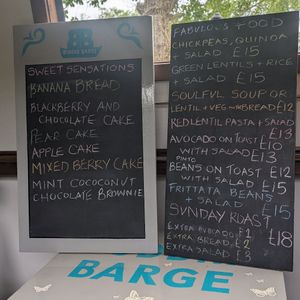 BB
SWEET SENSATIONS
BANANA BREAD
BLACKBERRY AND
CHOCOLATE CAKE
PEAR CAKE
APPLE CAKE
MIXED BERRY CAKE
MINT COCOCONUT
CHOCOLATE BROWNIE
FABULOUS FOOD
CHICKPEAS, QUINOA
+ SALAD £15
GREEN LENTILS + RICE
+ SALAD £15
SOULFUL SOUP OR
LENTIL + VEG BREAD £12
RED LENTIL PASTA + SALAD
£13
AVOCADO ON TOAST £10
WITH SALAD £13
PINTO
BEANS ON TOAST £12
WITH SALAD £15
FRITTATA BEANS
+ SALAD £15
SUNDAY ROAST
£18
EXTRA AVOCADO £2
EXTRA BREAD £2
EXTRA SALAD £3
BARGE